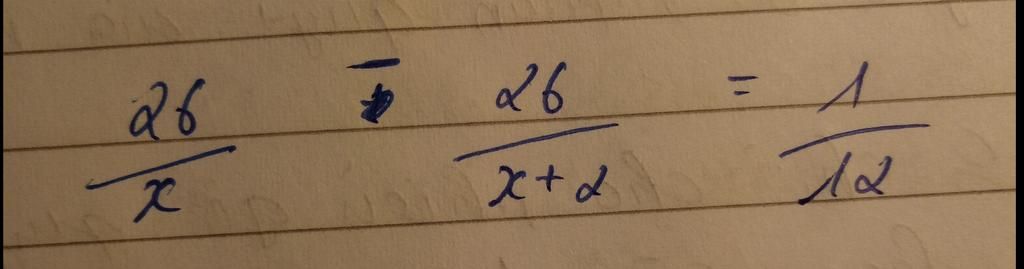 26/x - 26/x+2 = 1/12